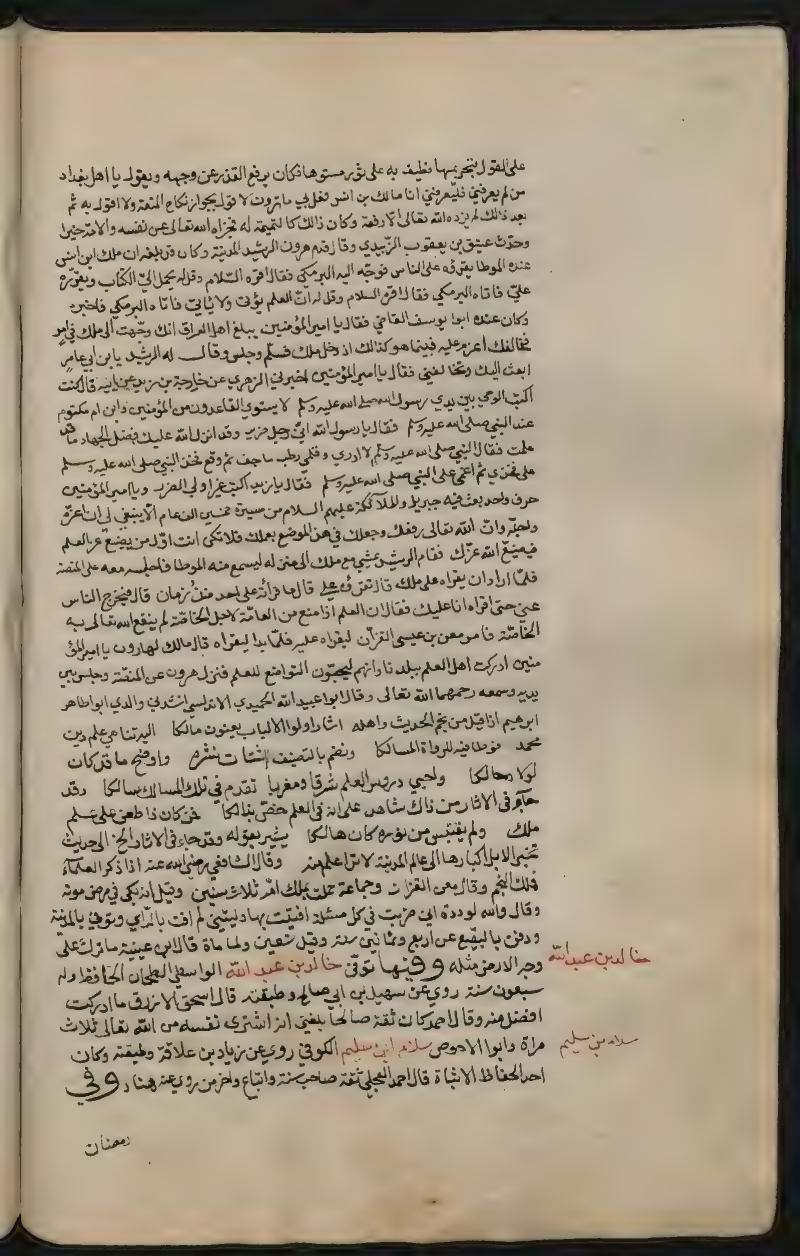 على القول بتحريمها فطيف به على ثور مستوها فكان يرفع القذر عن وجهه ويقول يا اهل بغداد
من لم يعرفني فليعرفني انا مالك بن انس فعل بي ما ترون لاقول بجواز نكاح المتعة ولا اقول به ثم
بعد ذالك لم يزده الله تعالى الا رفعة وكان ذالك كالتميمة له فجزاه الله تعالى عن نفسه والامة خيرا
وحدث عتيق بن يعقوب الزبيدي وقال قدم هرون الرشيد المدينة وكان قد بلغه ان ملك ابن انس
عنده الموطا يقرؤه على الناس فوجّه اليه البرمكي فقال اقره السلام وقل له يحمل اليّ الكتاب ويقرؤه
عليّ فاتاه البرمكي فقال اقره السلام وقل له انّ العلم يؤتى ولا يأتي فاتاه البرمكي فاخبره
وكان عنده ابوا يوسف القاضي فقال يا امير المؤمنين يبلغ اهل العراق انك وجهت الى ملك في امر
فخالفك اعزم عليه فبينما هو كذالك اذ دخل ملك فسلّم وجلس وقال له الرشيد يا بن ابي عامر
ابعث اليك وتخالفني فقال يا امير المؤمنين اخبرني الزهري عن خارجة بن زيد عن ابيه قال كنت
اكتب الوحي بين يدي رسول الله صلى الله عليه وسلم لا يستوي القاعدون من المؤمنين وابن ام مكتوم
عند النبي صلى الله عليه وسلم فقال يا رسول الله اني رجل ضرير وقد انزل الله عليك في فضل الجهاد ما قد
علمت فقال النبي صلى الله عليه وسلم لا ادري وقلمي رطب ما جف ثم وقع فخذ النبي صلى الله عليه وسلم
على فخذي ثم اغمي على النبي صلى الله عليه وسلم فقال يا زيد اكتب غير اولي الضرر ويا امير المؤمنين
حرف واحد بعث فيه جبريل والملائكة عليهم السلام من مسيرة خمسين الف عام الا ينبغي لي ان اعزّه
واجلّه وانّ الله تعالى رفعك وجعلك في هذا الموضع بعملك فلا تكن انت اوّل من يضيع عز العلم
فيضيّع الله عزّك فقام الرشيد يمشي مع ملك الى منزله ليسمع منه الموطا فاجلسه معه على المنصة
فلمّا اراد ان يقراه على ملك قال تقرؤه علي قال ما قرائه على احد منذ زمان قال فيخرج الناس
عني حتى اقراه انا عليك فقال ان العلم اذا منع من العامّة لاجل الخاصّة لم ينفع الله تعالى به
الخاصّة فامر معن بن عيسى القزّان ليقراه عليه فلمّا بدا ليقراه قال مالك لهارون يا امير المؤ
منين ادركت اهل العلم ببلدنا وانهم ليحبّون التواضع للعلم فنزل هرون عن المنصّة وجلس بين
يديه وسمعه رحمهما الله تعالى وقال ابوا عبيد الله الحميدي الاندلسي انشدني والدي ابوا طاهر
ابرهيم اذا قيل من نجم الحديث واهله اشار اولوا الالباب يعنون مالكا اليه تناهى علم دين
محمد فوطا فيه للرواة المسالكا ونظم بالتصنيف اشتات نشره واوضح ما قد كان
لولا حالكا واحيي دروس العلم شرقا ومغربا تقدم في تلك المسالك سالكا وقد
جآء في الاثار من ذاك شاهد على انه في العلم خصّ بذالكا فمن كان ذا طعن على علم
ملك ولم يقتبس من نوره كان هالكا يشير بقوله وقد جاء في الاثار الخ الى حديث
تضرب الابل اكبارها الى عالم المدينة لا ترا اعلم منه وقال الشافعي رضي الله عنه اذا ذكر العلمآء
فلك النجم وقال معن القزان وجماعة حملت بملك امّه ثلاث سنين وقيل انه بكى في مرض موته
وقال والله لوددة اني ضربت في كل مسئلة افتيت بها وليتني لم افت بالرّاي وتوفي بالمدينة
ودفن بالبقيع عن اربع وثمانين سنه وقيل تسعين ولما ماة قال ابن عيينة ما ترك على
وجه الارض مثله وفيها توفّى خالد بن عبد الله الواسطي الطحان الحافظ وله
سبعون سنة روي عن سهيل بن ابي صالح وطبقته قال اسحق الازرق ما ادركت
افضل منه وقال احمد كان ثقة صالحا بلغني انه اشترى نفسه من الله تعالى ثلاث
مراة وابوا الاحوص سلام ابن سليم الكوفي روي عن زياد بن علاقة وطبقته وكان
احد الحفاظ الاثباة قال احمد العجلي ثقة صاحب سنة واتباع واخر من روي عنه هناد وفي
خالد بن عبد الله
سلام بن سليم
رمضان